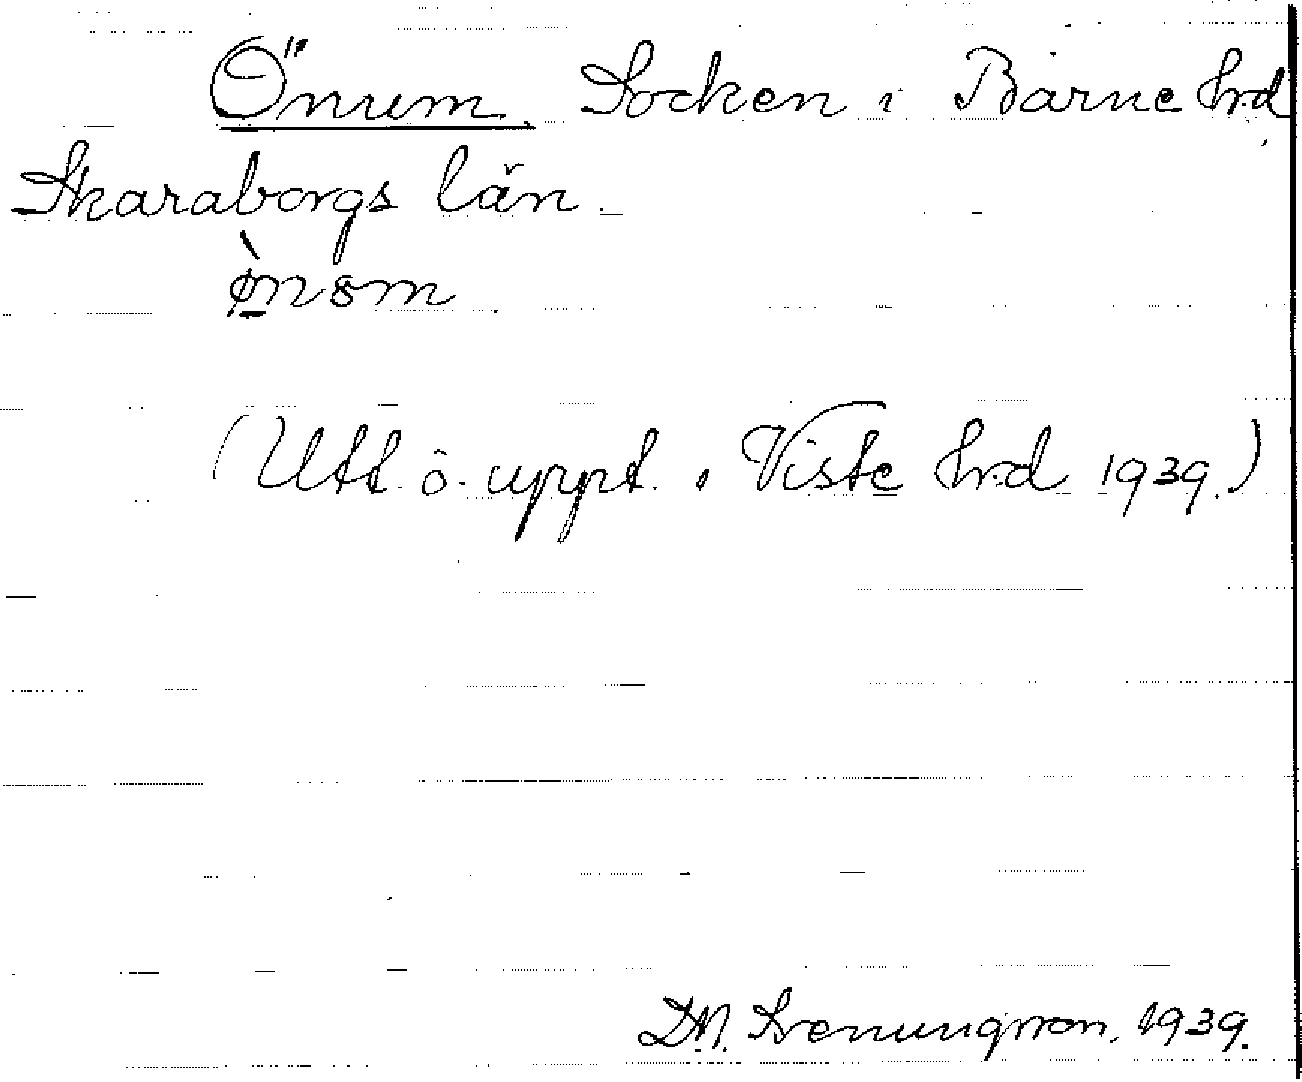 Önum. Socken i Barne hrd
Skaraborgs län.
(Utt. o. uppt. i Viste hrd 1939.)
D.N. Svenungsson, 1939.